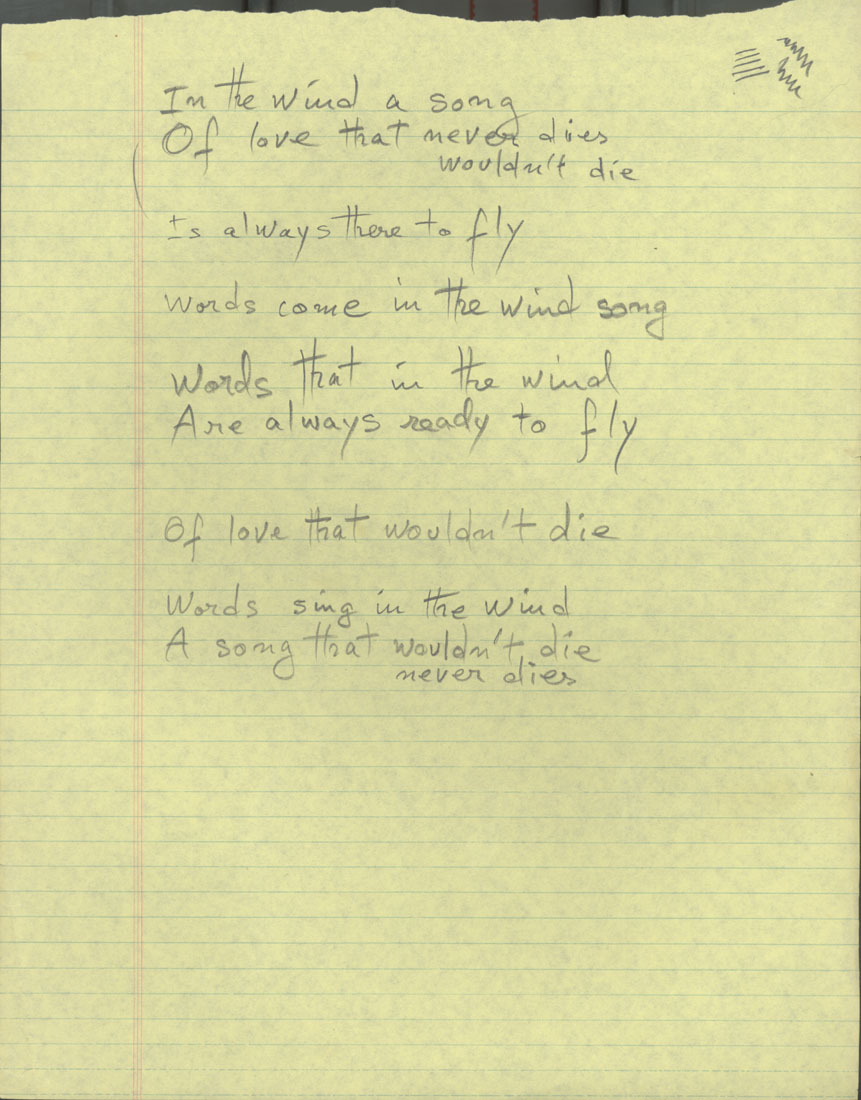 In the wind a song
Of love that never dies
wouldn't die
Is always there to fly
Words come in the wind song
Words that in the wind
Are always ready to fly
Of love that wouldn't die
Words sing in the wind
A song that wouldn't die
never dies